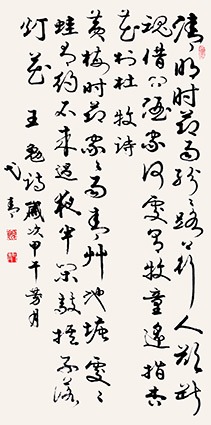 清明时节雨纷纷路上行人欲断
魂借问酒家何处有牧童遥指杏
花村杜牧诗
黄梅时节家家雨青草池塘处处
蛙有约不来过夜半闲敲棋子落
灯花 王魁诗 岁次甲午菊月
弋青